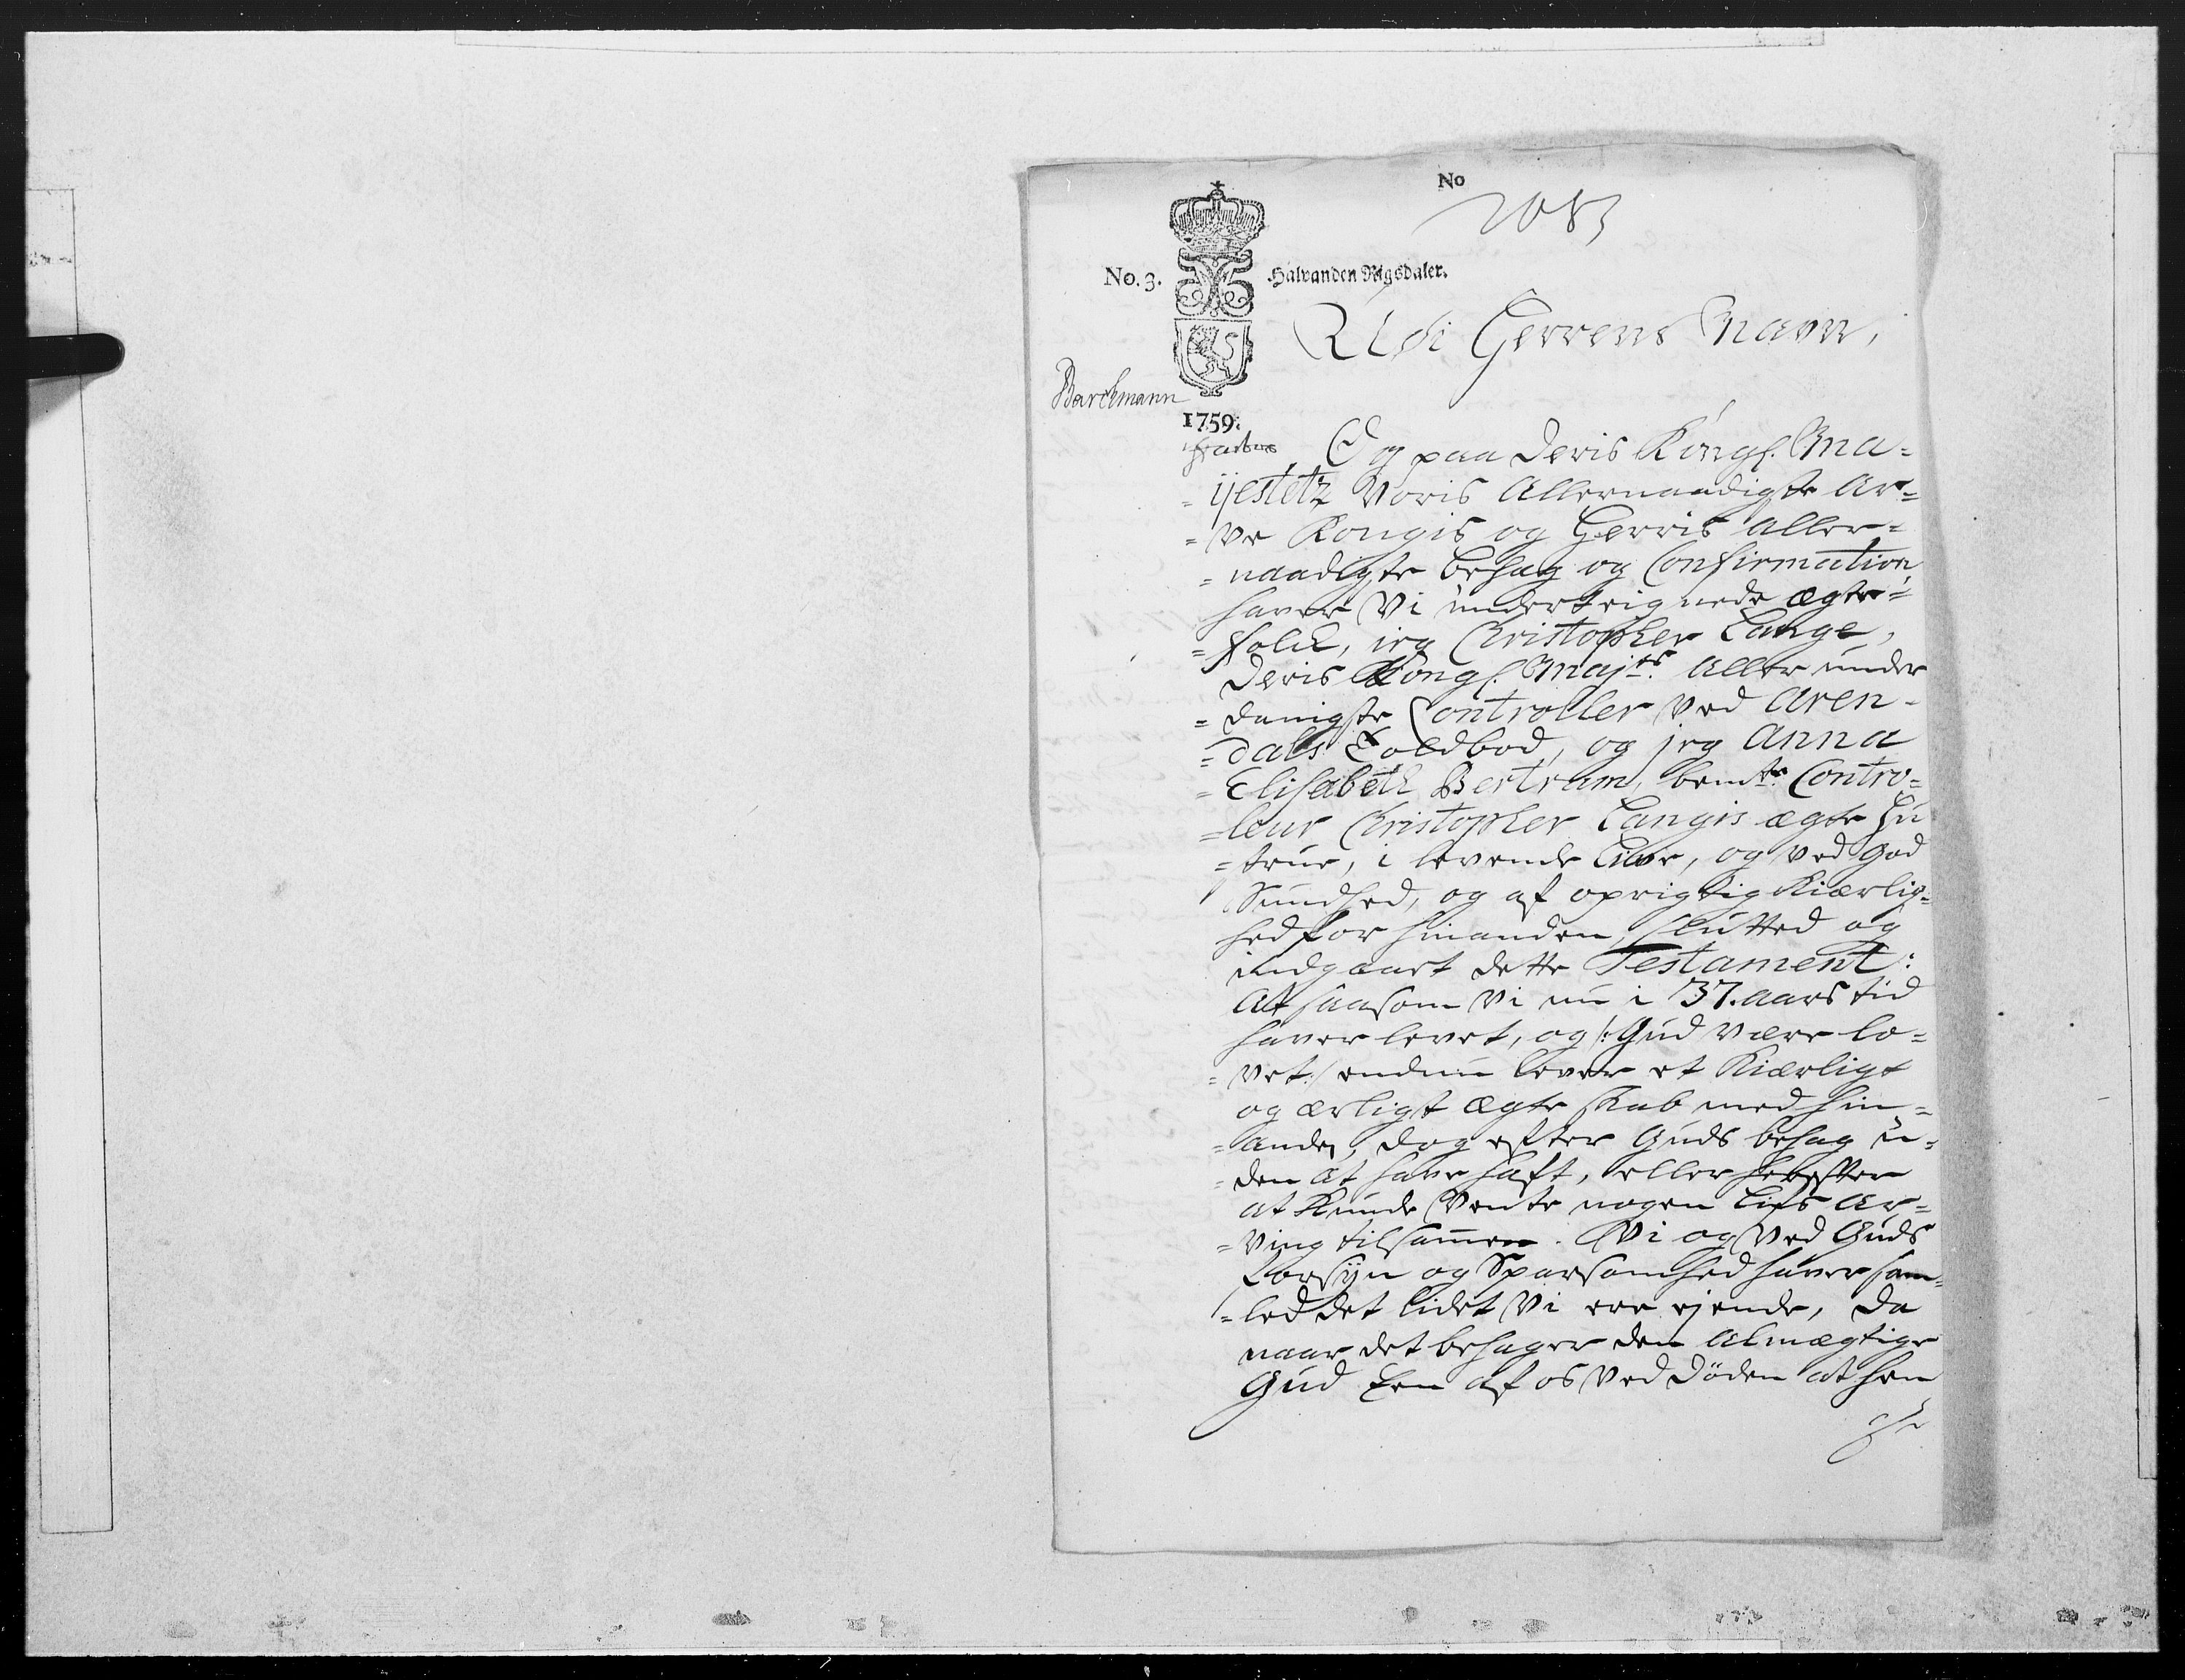 No
2083
No. 3. Halvanden Rigsdaler.
Udi Herrens Navn,
Barchmann
1759.
Og paa Deris Kongl. Ma-
-ijestetz Voris Allernaadigste Ar-
-ve Kongis og Herris Aller-
-naadigste behag og Confirmation
haver Vi underteignede Ægte-
-folck, ieg Christopher Lange,
Deris Kongl. Majts. Aller under
-danigste Controller Ved Aren-
-dals Toldbod, og jeg Anna
-Elisabeth Bertram, bemte. Contro-
-leur Christopher Langis ægte Hu
-strue, i levende Live, og ved god
Sundhed, og af oprigtig Kiærlig-
hed for hinanden, slutted og
indgaaet dette Testament:
At saasom Vi nu i 37. aars tid
haver levet, og /: Gud være lo-
-vet :/ endnu lever et Kiærligt
og ærligt Ægteskab med hin-
-anden, dog efter Guds behag u-
-den at have haft, eller herefter
at Kunde Vente nogen Lifs Ar-
-ving tilsammen. Vi og Ved Guds
Forsyn og Sparsomhed haver sam-
-led det lidet Vi ere ejende, da
naar det behager den Almægtige
Gud Een af os Ved Døden at hen